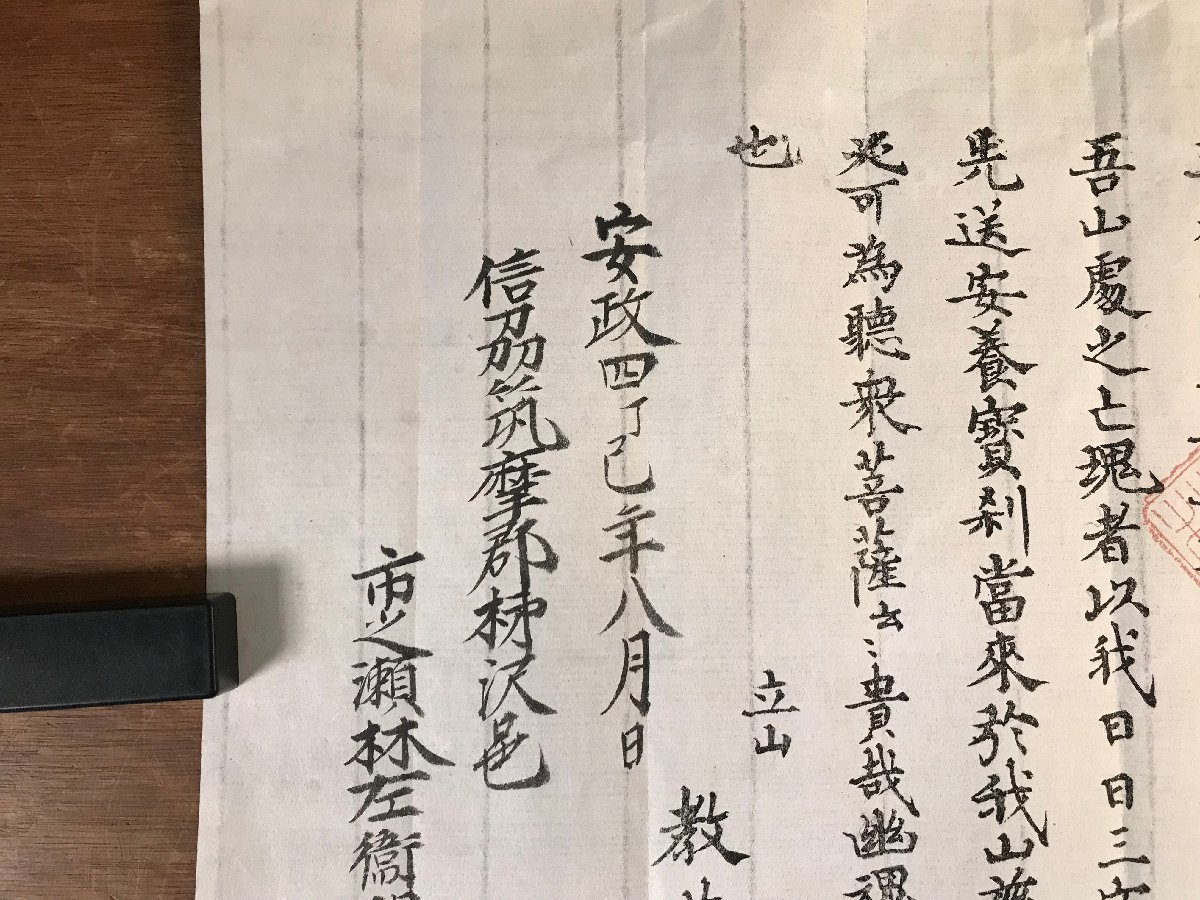 吾山處之亡魂者以我日日三
先送安養寳刹當來於我山
迯可為聽衆菩薩云〻貴哉幽
也
立山
教
安政四丁巳年八月日
信刕筑摩郡林沢邑
市之瀬林左衛